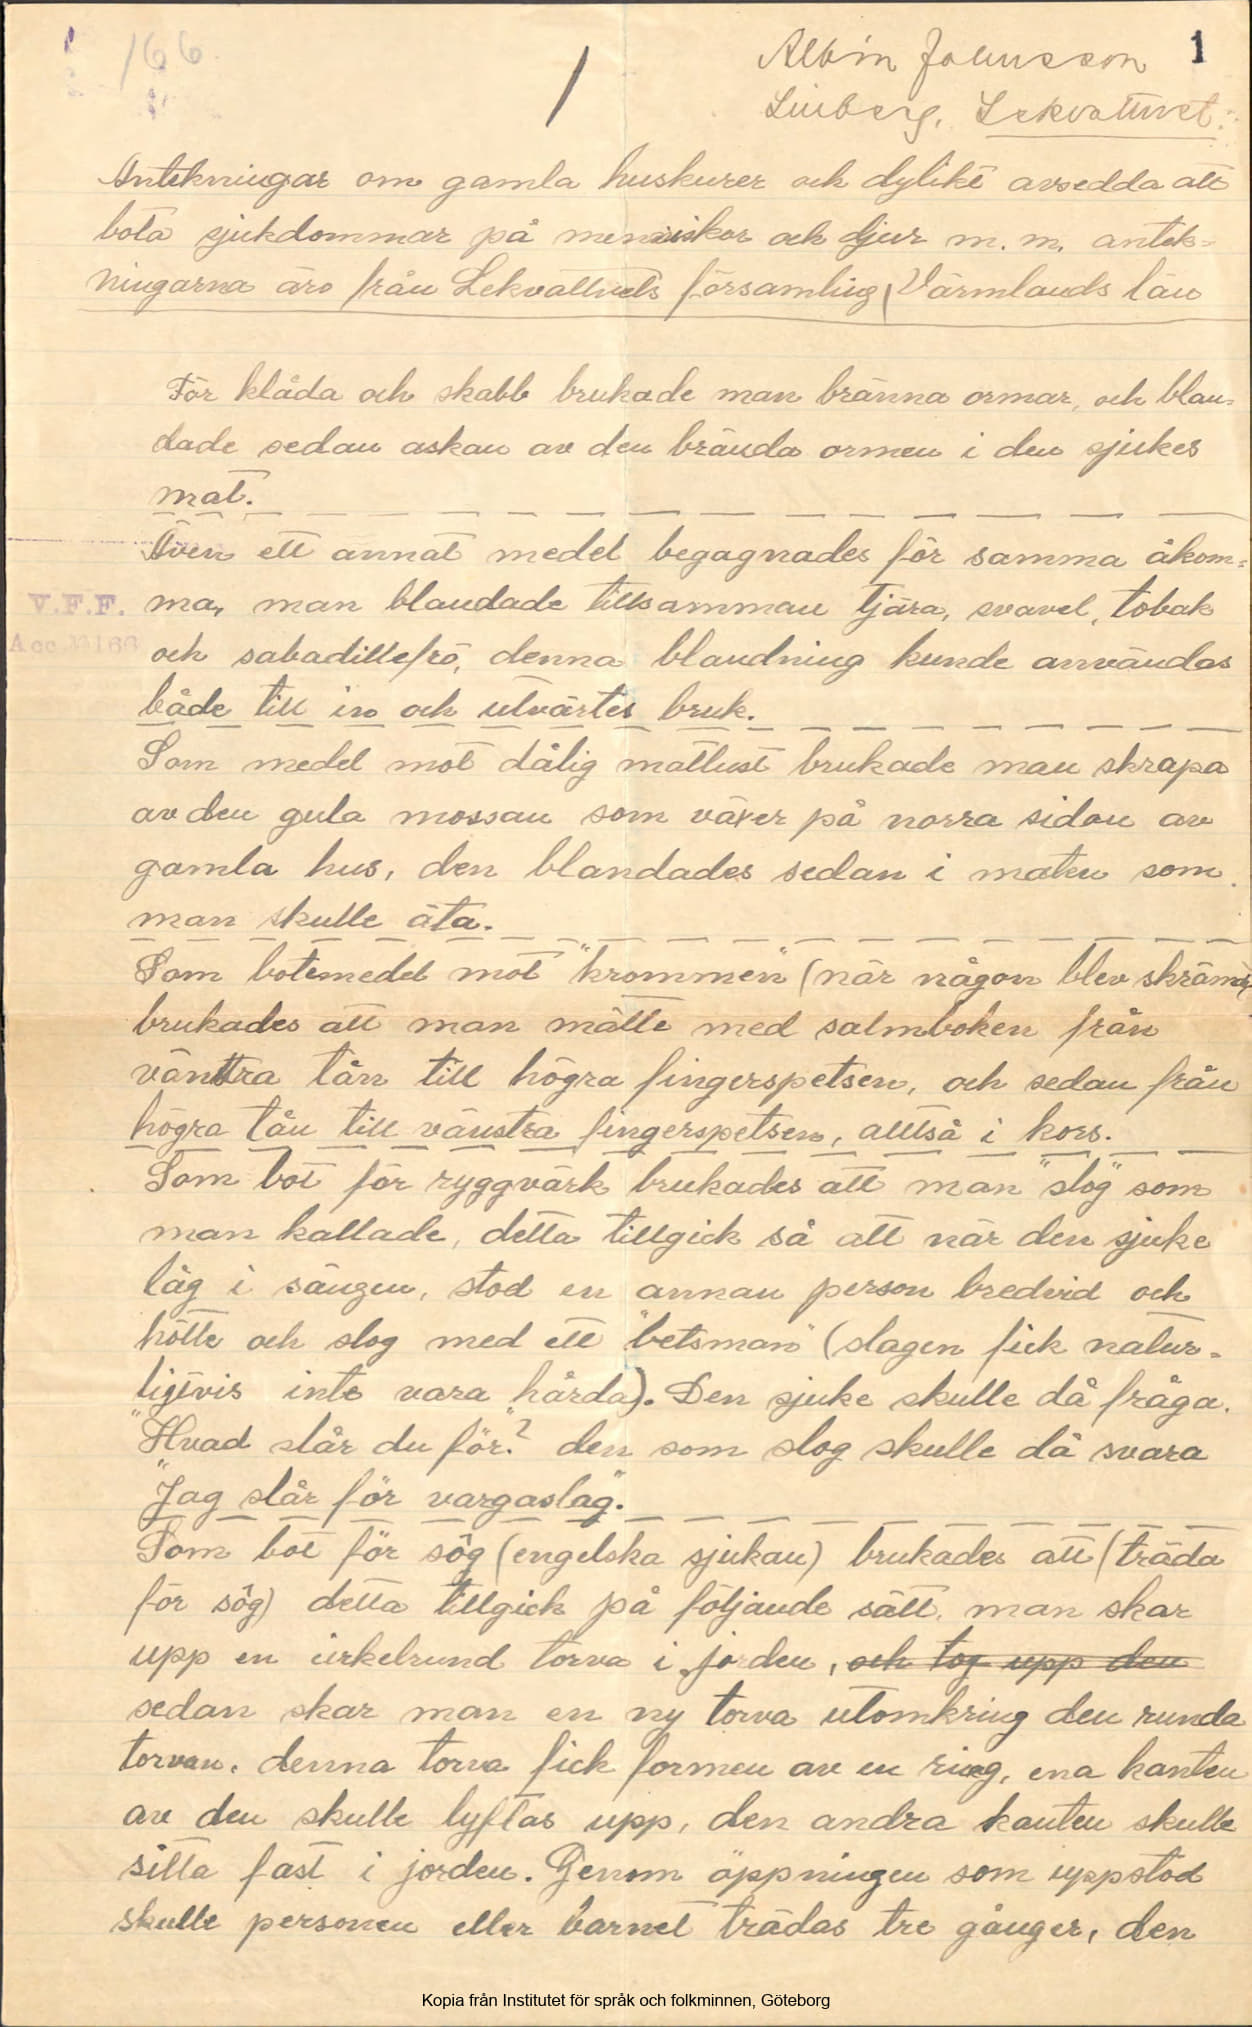 166
1
Albin Johnsson 1
Linberg, Lekvattnet.
Antekningar om gamla huskurer och dylikt avsedda att
bota sjukdommar på menniskor och djur m. m. antek=
ningarna äro från Lekvattnets församling, Värmlands län
För klåda och skabb brukade man bränna ormar, och blan=
dade sedan askan av den brända ormen i den sjukes
mat.
Även ett annat medel begagnades för samma åkom=
V.F.F. ma, man blandade tillsamman tjära, svavel, tobak
Acc.№166 och sabadillefrö, denna blandning kunde användas
både till in och utvärtes bruk.
Som medel mot dålig matlust brukade man skrapa
av den gula mossan som växer på norra sidan av
gamla hus, den blandades sedan i maten som
man skulle äta.
Som botemedel mot "krommen" (när någon blev skrämd)
brukades att man mätte med salmboken från
vänstra tån till högra fingerspetsen, och sedan från
högra tån till vänstra fingerspetsen, alltså i kors.
Som bot för ryggvärk brukades att man "slog" som
man kallade, detta tillgick så att när den sjuke
låg i sängen, stod en annan person bredvid och
hötte och slog med ett "betsman" (slagen fick natur=
ligtvis inte vara hårda). Den sjuke skulle då fråga.
"Hvad slår du för"? den som slog skulle då svara
"Jag slår för vargaslag".
Som bot för sôg (engelska sjukan) brukades att (träda
för sôg) detta tillgick på följande sätt, man skar
upp en cirkelrund torva i jorden, och tog upp den
sedan skar man en ny torva utomkring den runda
torvan, denna torva fick formen av en ring, ena kanten
av den skulle lyftas upp, den andra kanten skulle
sitta fast i jorden. Genom öppningen som uppstod
skulle personen eller barnet trädas tre gånger, den
Kopia från Institutet för språk och folkminnen, Göteborg